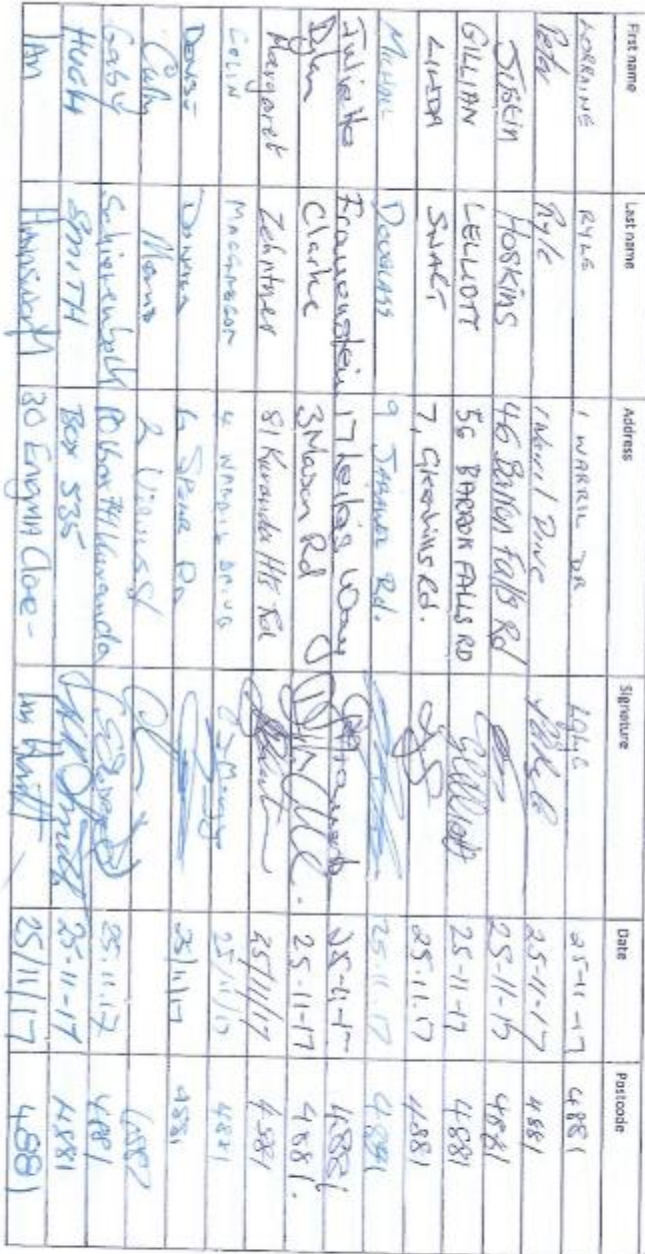 First name Last name Address Signature Date Postcode
LORRAINE RYLE 1 WARRIL DR 25-11-17 4881
Peter Ryle 1 Warril Drive 25-11-17 4881
HOSKINS 46 Barron Falls Rd 25-11-17 4881
GILLIAN LELLIOTT 56 BARRON FALLS RD 25-11-17 4881
LINDA SWART 7, Greenhills Rd. 25.11.17 4881
MICHAEL DOUGLASS 9 Rd. 25.11.17 4881
Juliette Frauenstein 17 Leilas Way 25-11-17 4881
Dylan Clarke 3 Mason Rd 25-11-17 4881.
Margaret Zehntner 81 Kuranda Hts Rd 25/11/17 4881
COLIN MACGREGOR 4 WARRIL DRIVE 25/11/17 4881
6 Rd 25/11/17 4881
2
Gaby PO Box 741 Kuranda 25.11.17 4881
HUGH SMITH Box 535 25-11-17 4881
IAN 30 Close - 25/11/17 4881